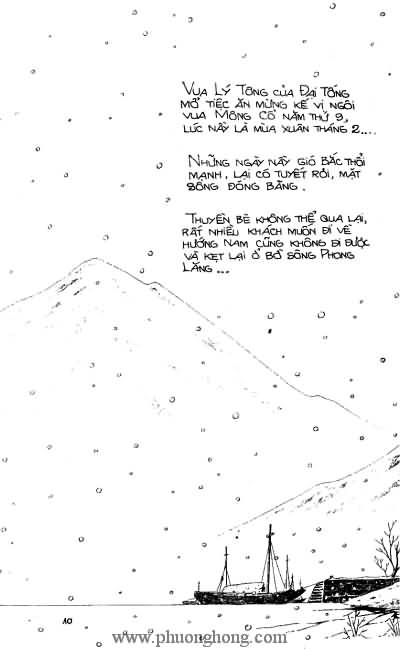 VUA LÝ TÔNG CỦA ĐẠI TỐNG
MỞ TIỆC ĂN MỪNG KẾ VỊ NGÔI
VUA MÔNG CỔ NĂM THỨ 9,
LÚC NẦY LÀ MÙA XUÂN THÁNG 2....
NHỮNG NGÀY NẦY GIÓ BẮC THỔI
MẠNH, LẠI CÓ TUYẾT RƠI, MẶT
SÔNG ĐÓNG BĂNG.
THUYỀN BÈ KHÔNG THỂ QUA LẠI,
RẤT NHIỀU KHÁCH MUỐN ĐI VỀ
HƯỚNG NAM CŨNG KHÔNG ĐI ĐƯỢC
VÀ KẸT LẠI Ở BỜ SÔNG PHONG
LĂNG ...
10
www.phuonghong.com